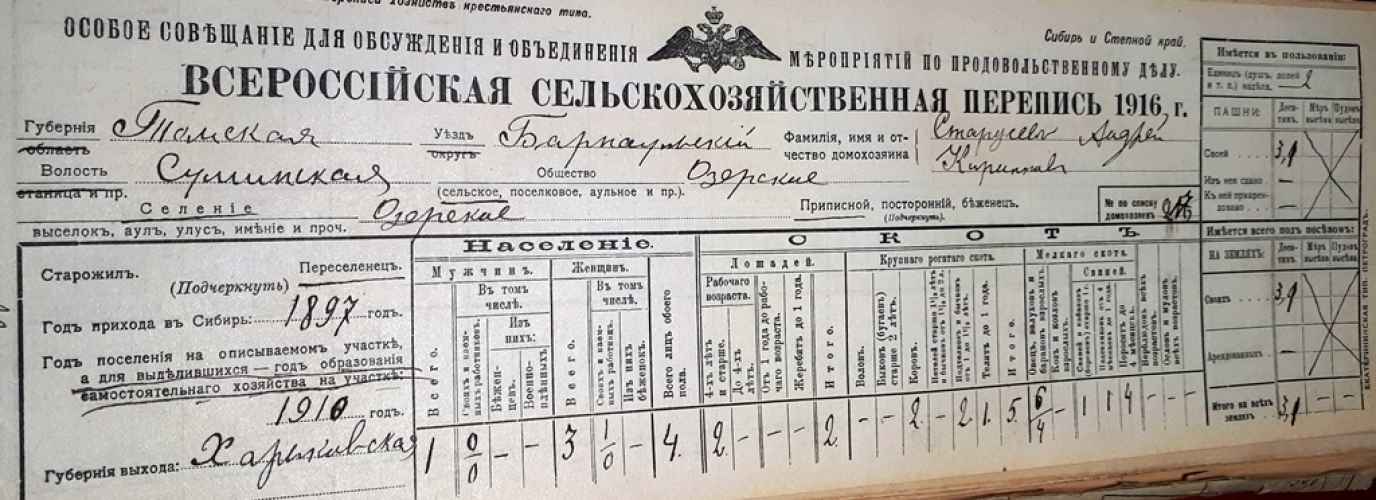 хозяйствъ крестьянскаго типа.
Сибирь и Степной край.
ОСОБОЕ СОВѢЩАНІЕ ДЛЯ ОБСУЖДЕНІЯ И ОБЪЕДИНЕНІЯ МѢРОПРІЯТІЙ ПО ПРОДОВОЛЬСТВЕННОМУ ДѢЛУ.
ВСЕРОССІЙСКАЯ СЕЛЬСКОХОЗЯЙСТВЕННАЯ ПЕРЕПИСЬ 1916 г.
Губернія Томская Уѣздъ Барнаульскій Фамилія, имя и от- Андрей
область округъ чество домохозяина
Волость Сулинская Общество Озерское
станица и пр. (сельское, поселковое, аульное и пр.).
Селеніе Озерское Приписной, посторонній, бѣженецъ.
(Подчеркнуть).
№ по списку домохозяевъ
выселокъ, аулъ, улусъ, имѣніе и проч.
Старожилъ. Переселенецъ.
(Подчеркнуть)
Годъ прихода въ Сибирь: 1897 годъ.
Годъ поселенія на описываемомъ участкѣ,
а для выдѣлившихся — годъ образованія
самостоятельнаго хозяйства на участкѣ:
1910 годъ.
Губернія выхода: Харьковская
Населеніе.
Мужчинъ. Женщинъ. Всего лицъ обоего пола.
Всего. Въ томъ числѣ. Своихъ и наемныхъ работниковъ. Изъ нихъ: Бѣженцевъ. Военноплѣнныхъ.
Всего. Въ томъ числѣ. Своихъ и наемныхъ работницъ. Изъ нихъ бѣженокъ.
1 0/0 — — 3 1/0 — 4.
СКОТЪ.
Лошадей. Крупнаго рогатаго скота. Мелкаго скота.
Рабочаго возраста. 4-хъ лѣтъ и старше. До 4-хъ лѣтъ. Отъ 1 года до рабочаго возраста. Жеребятъ до 1 года. Итого.
Воловъ. Быковъ (бугаевъ) старше 2 лѣтъ. Коровъ. Телятъ до 1 года. Итого.
Свиней. Поросятъ до 4 мѣсяц. Верблюдовъ всѣхъ возрастовъ. Ословъ и муловъ всѣхъ возрастовъ.
2 — — — 2. — — 2. — 2 1. 5. 6/4 — 1 1 4 — — —
Имѣется въ пользованіи:
Единицъ (душ. долей и т. п.) надѣла. 2
ПАШНИ: Деся-тинъ. Мѣръ высѣва Пудовъ высѣва
Своей 3,9
Изъ нея сдано —
Къ ней приарендовано —
Имѣется всего подъ посѣвомъ:
НА ЗЕМЛЯХЪ: Деся-тинъ. Мѣръ высѣва Пудовъ высѣва
Своихъ 3,9
Арендованныхъ —
Итого на всѣхъ земляхъ 3,9 — —
ЕКАТЕРИНИНСКАЯ ТИП. ПЕТРОГРАДЪ.